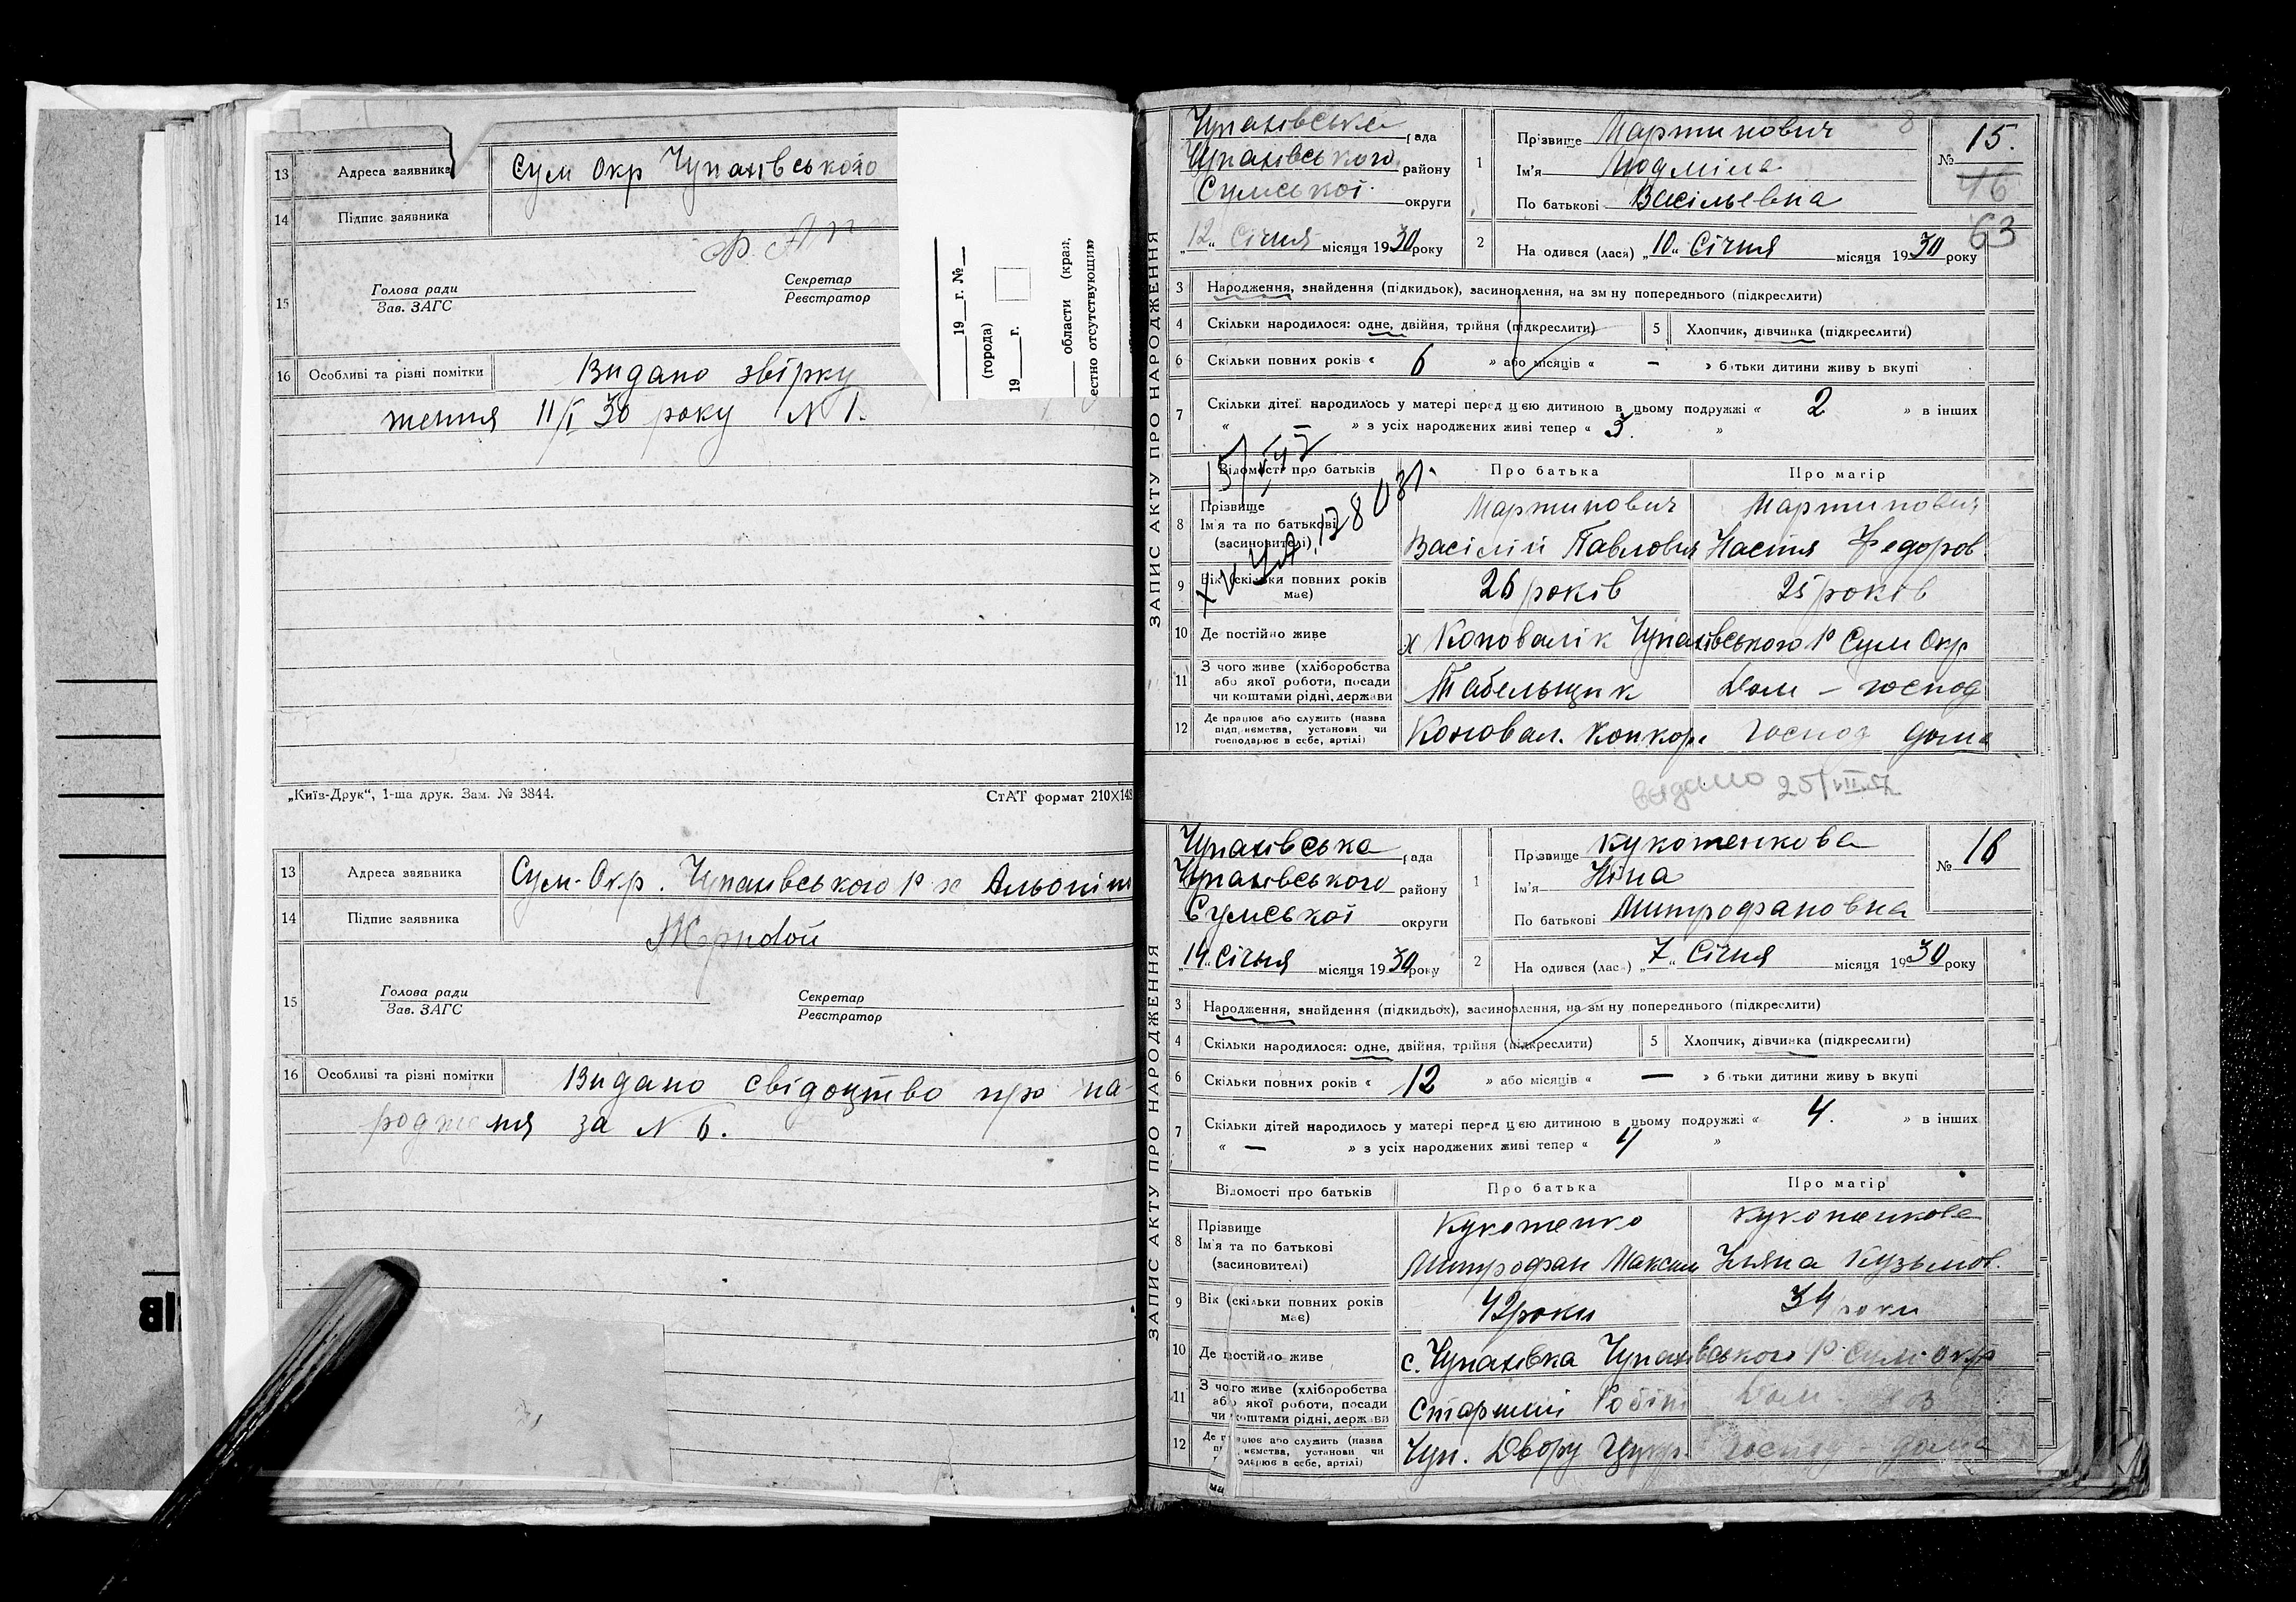 13 Адреса заявника Сум Окр Чупахівського
14 Підпис заявника
15 Голова ради
Зав. ЗАГС
Секретар
Реєстратор
16 Особливі та різні помітки Видано звірку
11/I 30 року N 1.
19__ г. № __
(города)
19__ г.
области (края,
естно отсутствующих»
„Київ-Друк“, 1-ша друк. Зам. № 3844. СтАТ формат 210×148
13 Адреса заявника Сум-Окр. Чупахівського Р х
14 Підпис заявника
15 Голова ради
Зав. ЗАГС
Секретар
Реєстратор
16 Особливі та різні помітки Видано свідоцтво про на-
родження за N 6.
ЗАПИС АКТУ ПРО НАРОДЖЕННЯ
Чупахівська рада
Чупахівського району
Сумської округи
„12„ Січня місяця 1930 року
1 Прізвище Мартинович
Ім'я Людміла
По батькові Васільевна
№ 15.
16
63
2 На одився (лася) „10„ Січня місяця 1930 року
3 Народження, знайдення (підкидьок), засиновлення, на зм ну попереднього (підкреслити)
4 Скільки народилося: одне, двійня, трійня (підкреслити) 5 Хлопчик, дівчинка (підкреслити)
6 Скільки повних років « 6 » або місяців « — » батьки дитини живу ь вкупі
7 Скільки дітей народилось у матері перед цією дитиною в цьому подружжі « 2 » в інших
« » з усіх народжених живі тепер « 3. »
Відомості про батьків Про батька Про матір
8 Прізвище Мартинович Мартинович
Ім'я та по батькові
(засиновителі) Васілій Павлович Настя Федоров.
9 Вік (скільки повних років має) 26 років 25 років
10 Де постійно живе х Коновалік Чупахівського Р Сум Окр
11 З чого живе (хліборобства
або якої роботи, посади
чи коштами рідні, держави Табельщик Дом – господ
12 Де працює або служить (назва
підп иємства, установи чи
господарює в себе, артілі) Коновал. господ дома
видано 25/VII.57
ЗАПИС АКТУ ПРО НАРОДЖЕННЯ
Чупахівська рада
Чупахівського району
Сумської округи
„14„ Січня місяця 1930 року
1 Прізвище Кукотенкова
Ім'я Ніна
По батькові Митрофановна
№ 16
2 На одився (лася) „7„ Січня місяця 1930 року
3 Народження, знайдення (підкидьок), засиновлення, на зм ну попереднього (підкреслити)
4 Скільки народилося: одне, двійня, трійня (підкреслити) 5 Хлопчик, дівчинка (підкреслити)
6 Скільки повних років « 12 » або місяців « — » батьки дитини живу ь вкупі
7 Скільки дітей народилось у матері перед цією дитиною в цьому подружжі « 4. » в інших
« — » з усіх народжених живі тепер « 4 »
Відомості про батьків Про батька Про матір
8 Прізвище Кукотенко Кукотенкова
Ім'я та по батькові
(засиновителі) Митрофан Максим Уляна Кузьмов.
9 Вік (скільки повних років має) 42 роки 34 роки
10 Де постійно живе с. Чупахівка Чупахівського Р Сум. Окр
11 З чого живе (хліборобства
або якої роботи, посади
чи коштами рідні, держави Старший Дом.
12 Де працює або служить (назва
підп иємства, установи чи
господарює в себе, артілі) Чуп. Двору Цукр. господ – дома